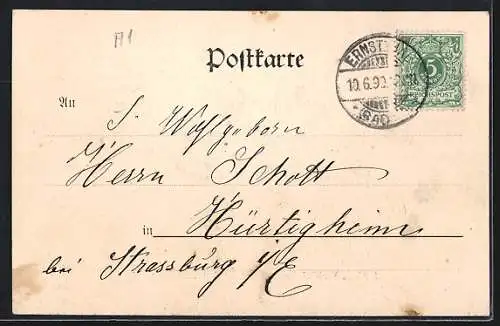 A1
Postkarte
ERNST
10.6.99.
BAD
5
REICHSPOST
An
S. Wohlgeboren
Herrn Schott
in Hürtigheim
bei Strassburg i/E